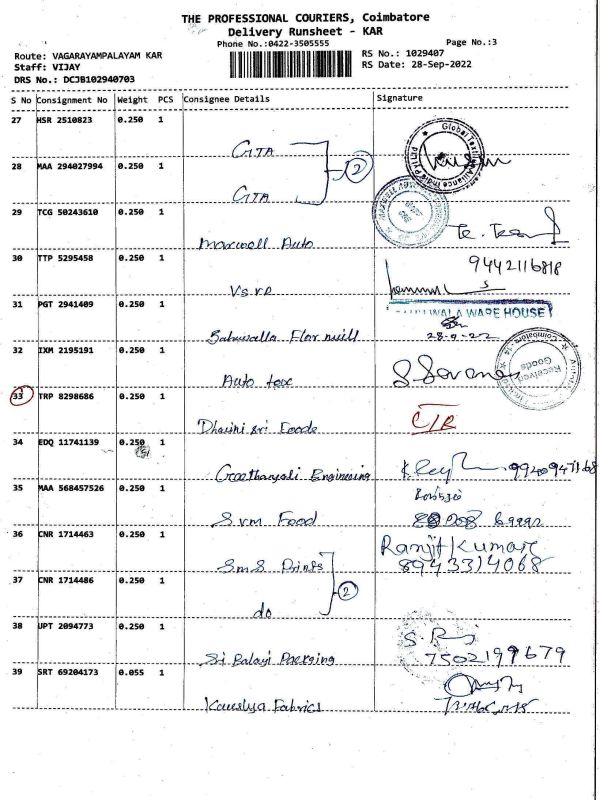 THE PROFESSIONAL COURIERS, Coimbatore
Delivery Runsheet - KAR
Phone No.:0422-3505555
Page No.:3
Route: VAGARAYAMPALAYAM KAR
RS No.: 1029407
Staff: VIJAY
RS Date: 28-Sep-2022
DRS No.: DCJB102940703
S No Consignment No Weight PCS Consignee Details Signature
27 HSR 2510823 0.250 1
GTA
28 MAA 294027994 0.250 1
2
GTA
29 TCG 50243610 0.250 1
Maxwell Auto
30 TTP 5295458 0.250 1
9442116818
V.s.r.p
31 PGT 2941409 0.250 1
WALA WARE HOUSE
Flor mill
28-9-22
32 IXM 2195191 0.250 1
Received Goods
Coimbatore-14
Auto tex
33 TRP 8298686 0.250 1
Sri Foods
34 EDQ 11741139 0.250 1
Engineering
35 MAA 568457526 0.250 1
S.v.m Food
36 CNR 1714463 0.250 1
Ranjit Kumar
8943314068
S.m.S Prints
37 CNR 1714486 0.250 1
2
do
38 UPT 2094773 0.250 1
7502199679
Sri Balaji Packing
39 SRT 69204173 0.055 1
Kausalya Fabrics